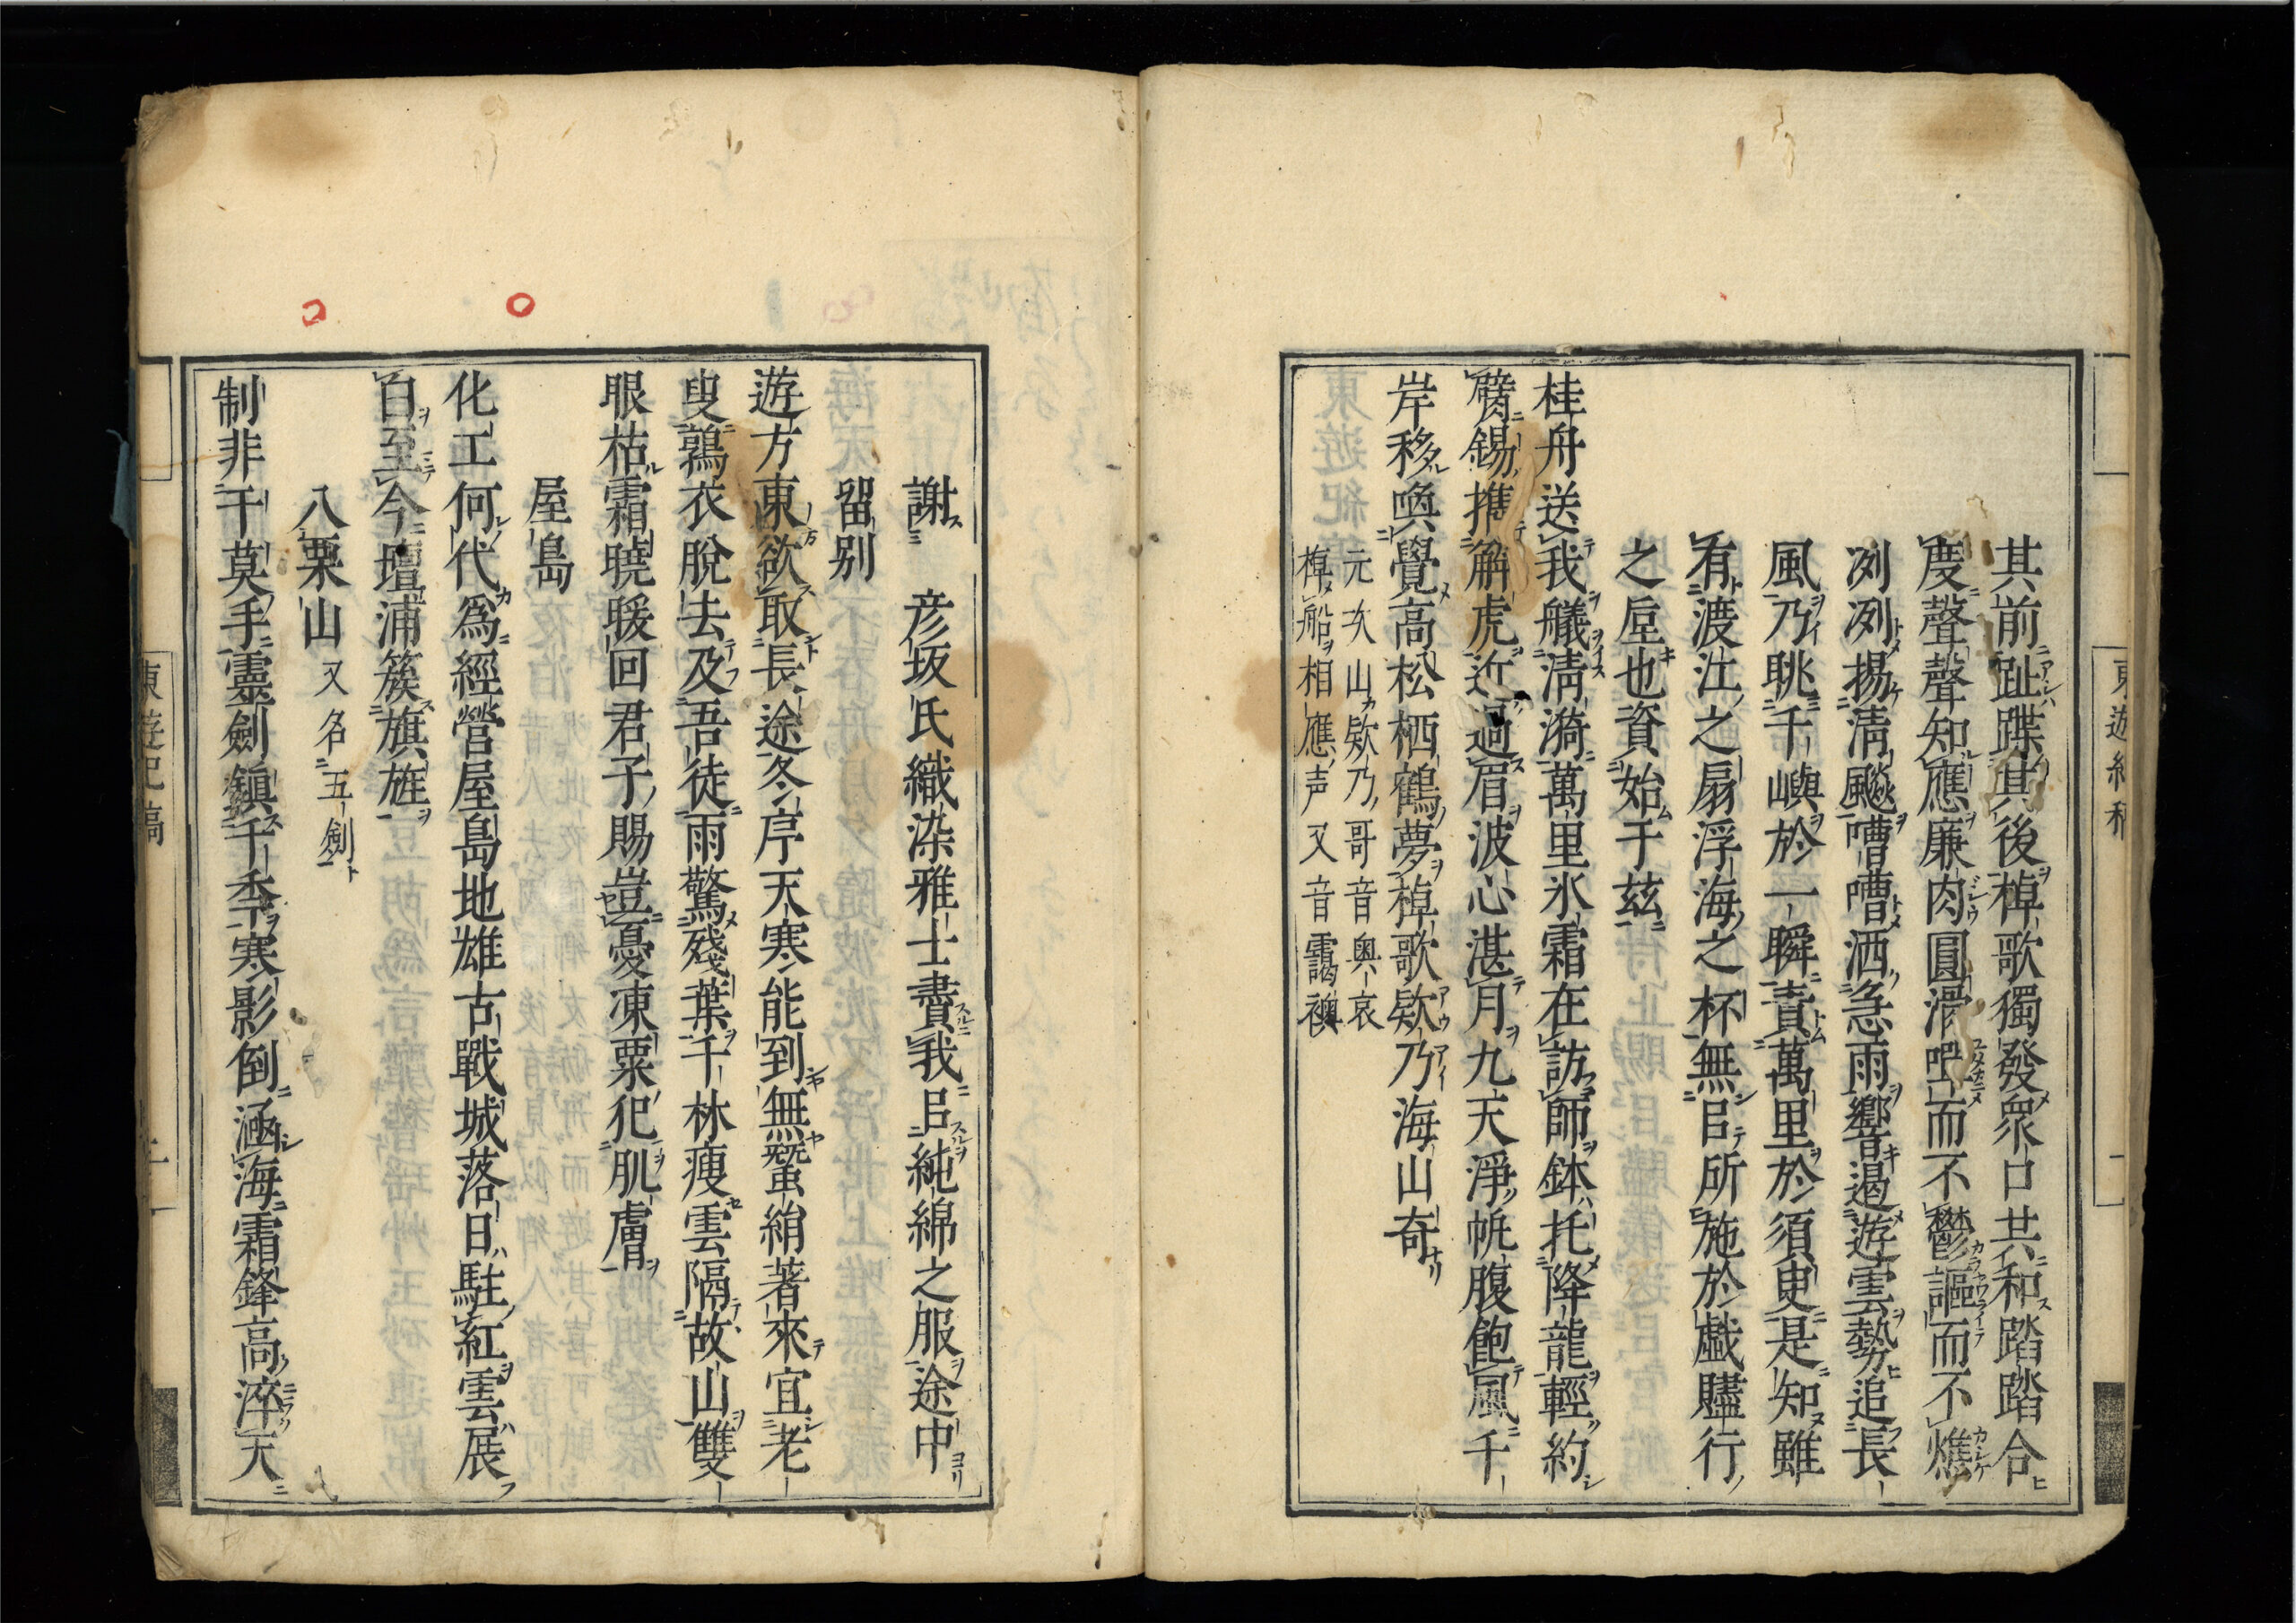 其前趾蹀其後棹歌獨發衆口共和踏踏合
度聲聲知應廉肉圓滑而不鬱謳而不燋
冽冽揚淸飈嘈嘈洒急雨響遏遊雲勢追長
風乃眺千嶼於一瞬責萬里於須臾是知雖
有渡江之扇浮海之杯無㠯所施於戯贐行
之㞐也資始于茲
桂舟送我艤淸漪萬里氷霜在訪師鉢托降龍輕約
臂錫擕解虎近過眉波心湛月九天淨帆腹飽風千
岸移喚覺高松栖鶴夢棹歌欵乃海山奇
元次山欵乃哥音奥哀
棹船相應声又音靄襖
謝 彦坂氏織染雅士賮我㠯純綿之服途中
留别
遊方東欲取長途冬序天寒能到無蠒絹著來宜老
叟鶉衣脫去及吾徒雨驚殘葉千林瘦雲隔故山雙
眼枯霜曉暖回君子賜豈憂凍粟犯肌膚
屋島
化工何代爲經營屋島地雄古戰城落日駐紅雲展
白至今壇浦簇旗旌
八栗山 又名五劍
制非干莫手靈劍鎮千秊寒影倒涵海霜鋒高淬天
東遊紀稿